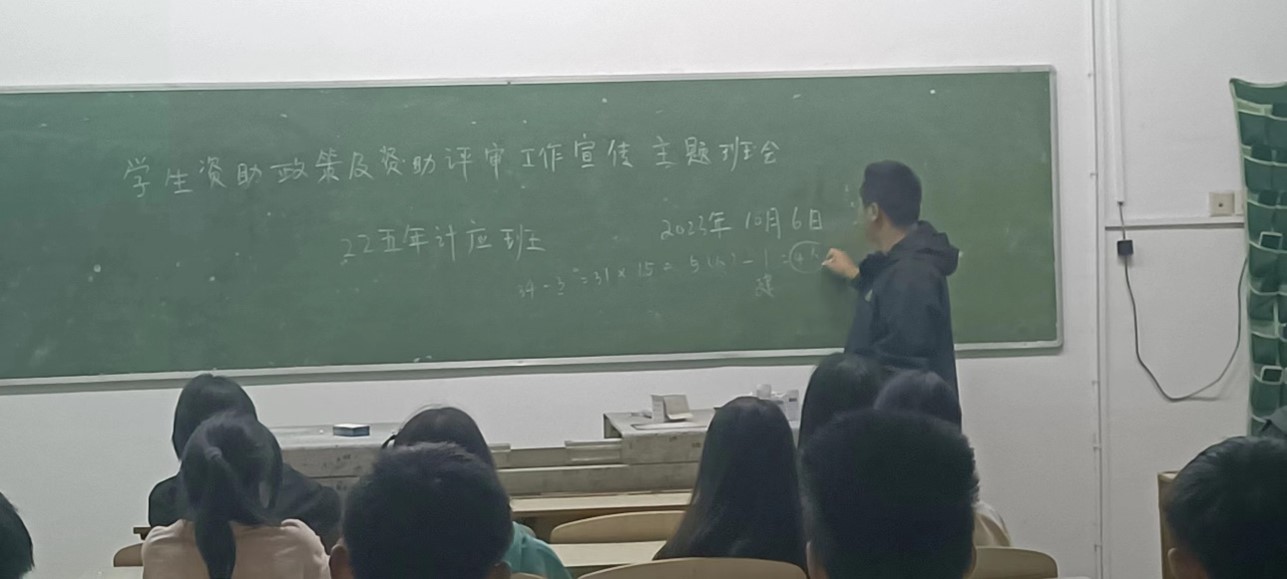 学生资助政策及资助评审工作宣传 主题班会
22五年计应班 2023年10月6日
34-3=31×15= 5(人)-1=
建